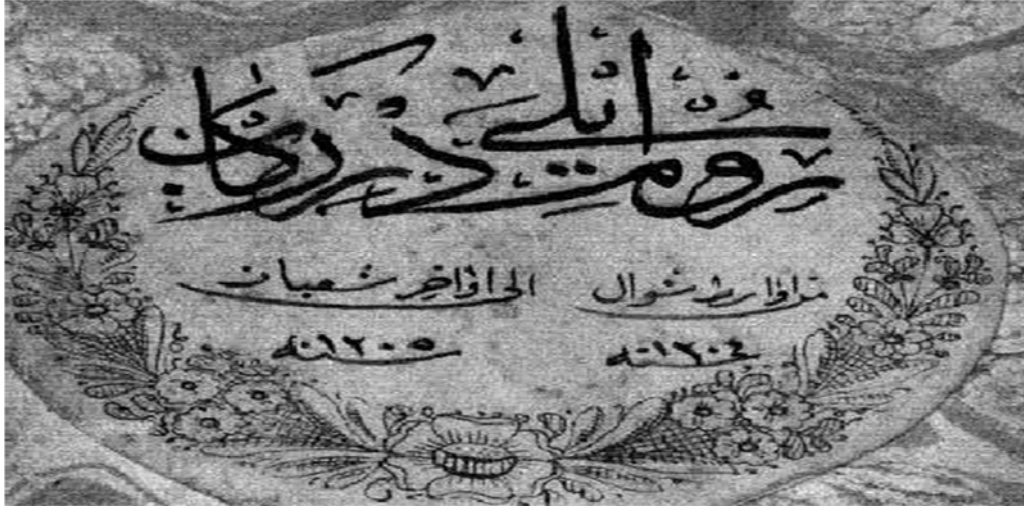 روم ايلى
من اواسط شوال الى اواخر شعبان
سنه ١٢٠٤ سنه ١٢٠٥